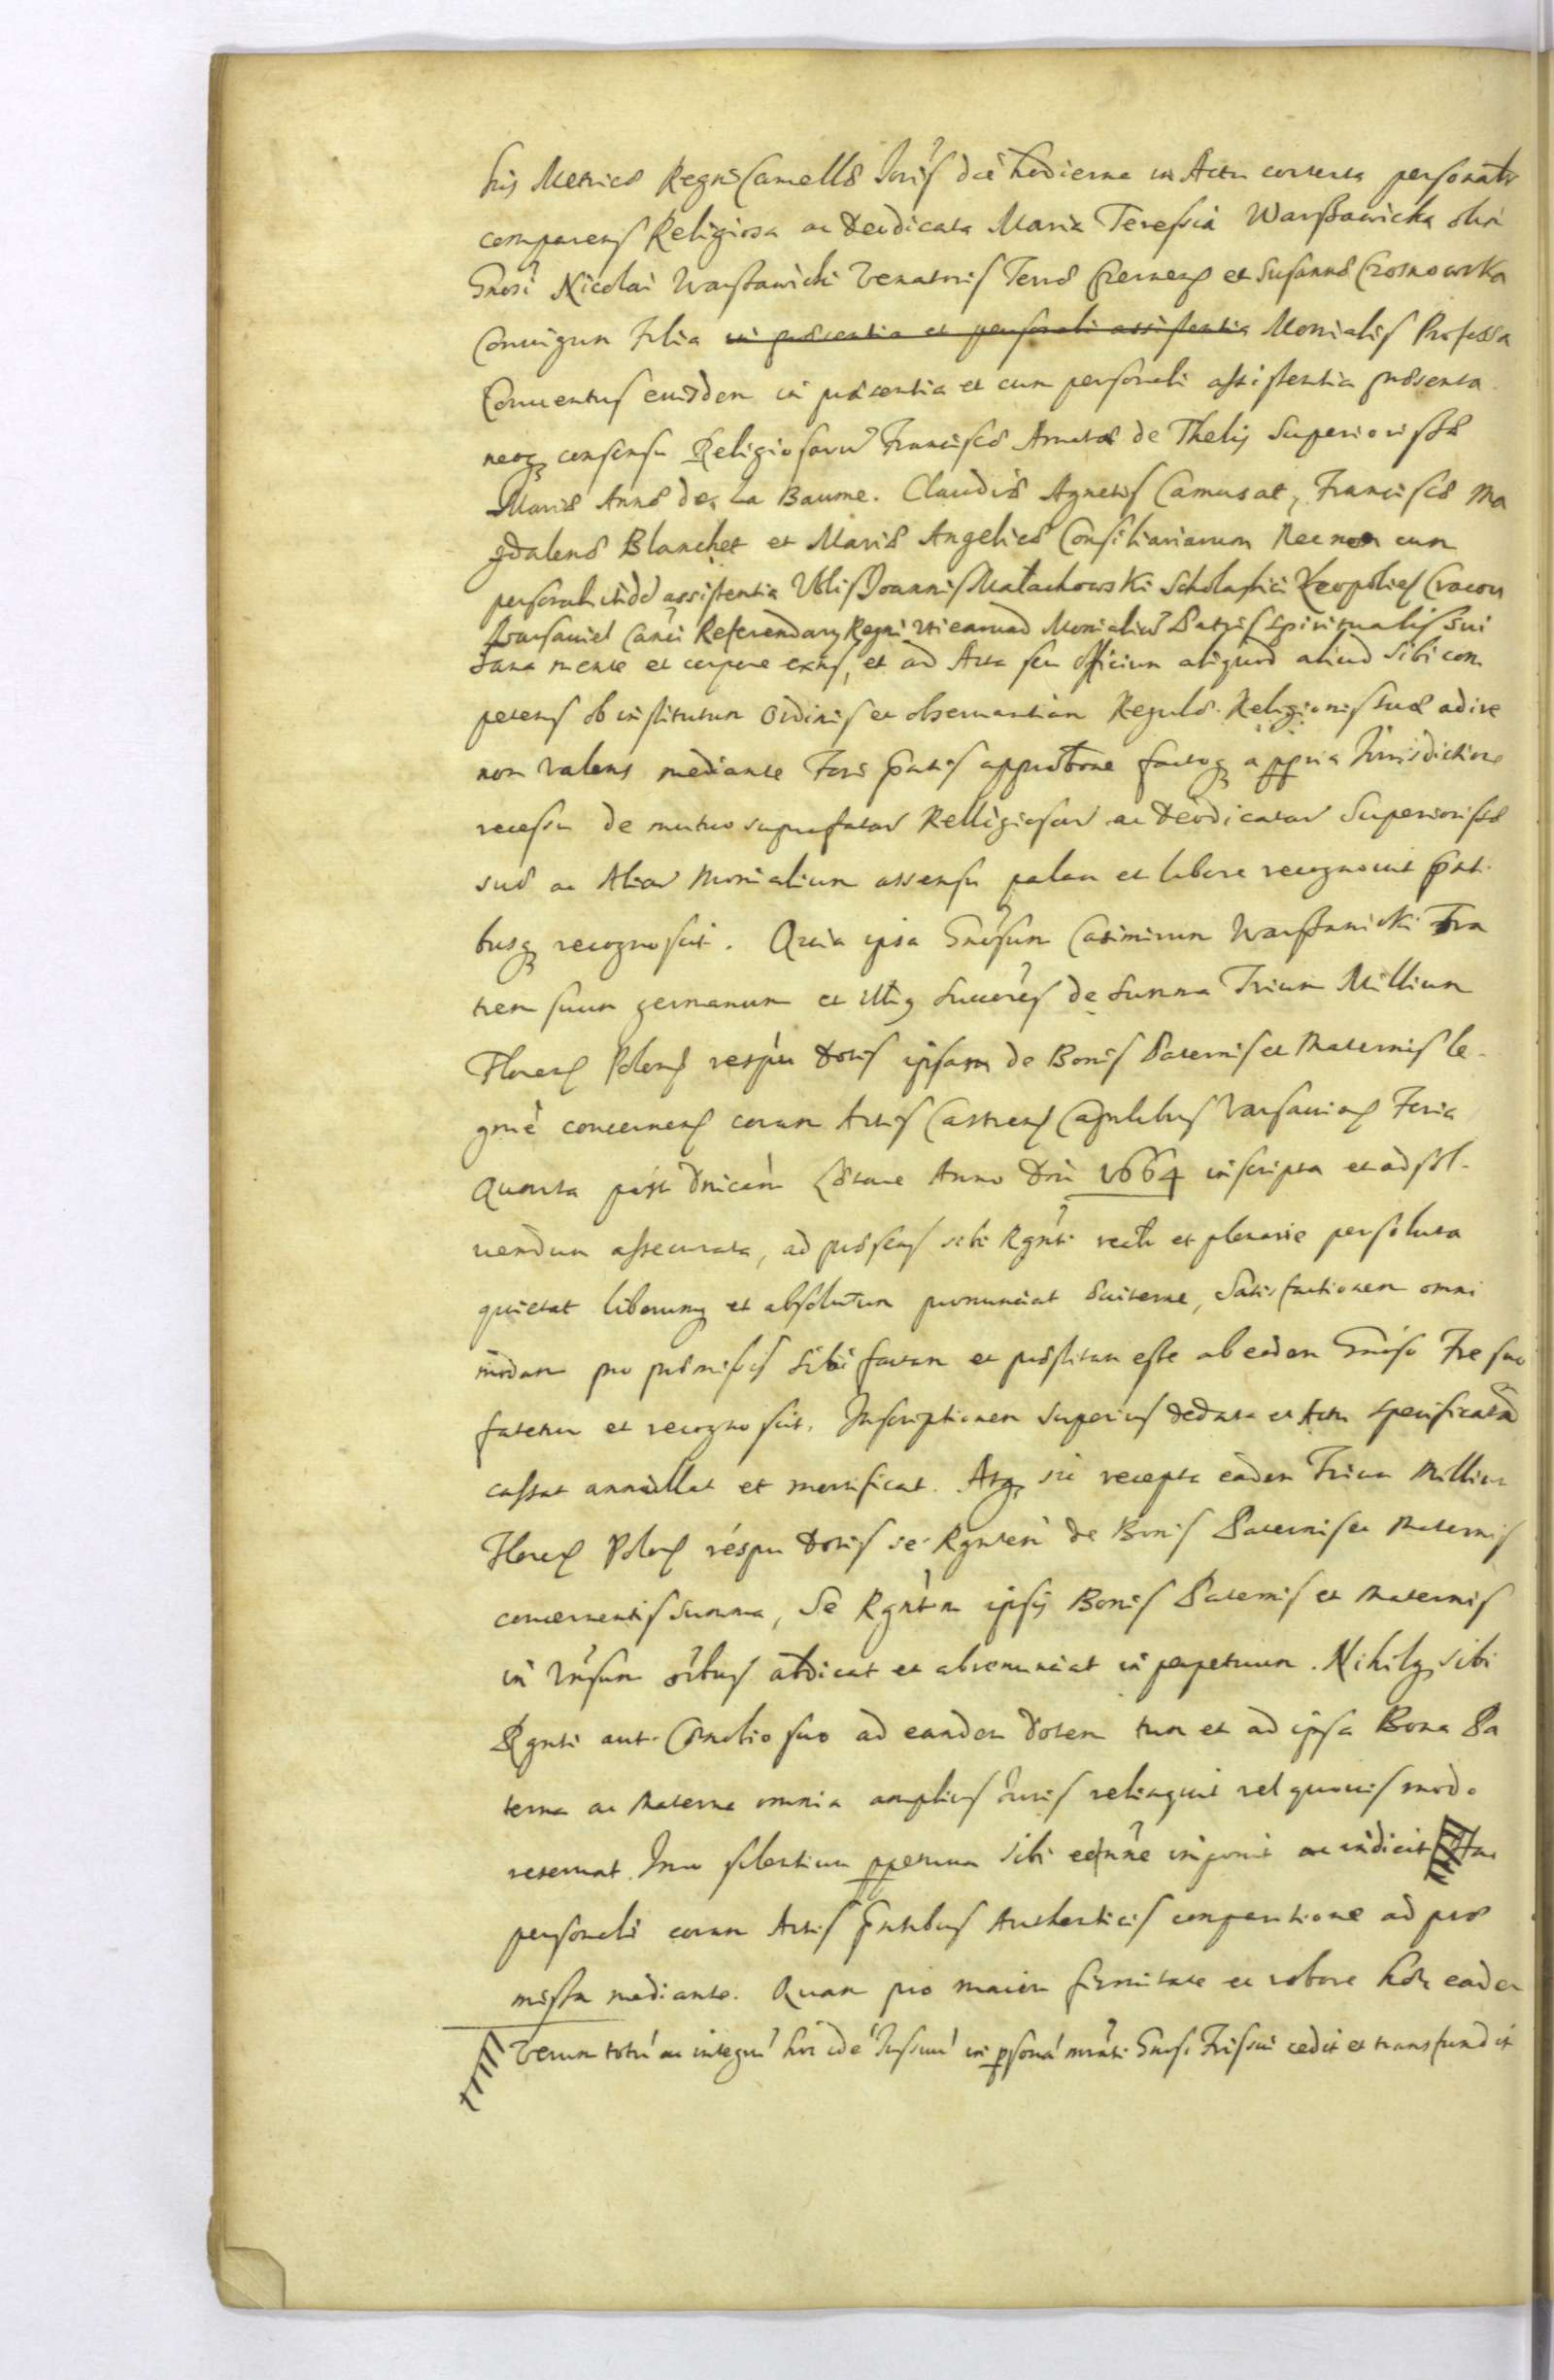 his Metrices Regni Cancellae Joris die hodierna in Actu contenta personalr
comparens Religiosa ac Deodicata Maria Teressia Warszawicka olim
Gnosi Nicolai Warszawicki Venatoris Terrae Czernens et Susannae Czosnowska
Coniugum Filia in praesentia et personali assistentia Monialis Professa
Conuentus eiusdem in praesentia et cum personali assistentia praesenta
neoq consensu Religiosarum Franciscae Arnatae de Thelis Superiorissae
Mariae Annae de La Baume. Claudiae Agnetis Camusat, Franciscae Ma
gdalenae Blanchet et Mariae Angelicae Consiliariarum Nec non cum
personali itidem assistentia Vblis Joannis Małachowski Scholastici Leopoliens Cracou
Varsauien Canci Referendary Regni Vti earumd Monialium Patris spiritualis Sui
Sana mente et corpore exns, et ad Acta seu Officium aliquod aliud sibi com
petens ob institutum Ordinis et obseruantiam Regulae Religionis suae adire
non valens mediante Fori pntis approbtone factoq a ppria Jurisdictione
recessu de mutuo suprafatar Relligiosar ac Deodicatar Superiorissae
suae ac Aliar Monialium assensu palam et libere recognouit pnt
busq recognoscit. Quia ipsa Gnosum Casimirum Warszawicki Fra
trem suum germanum et illius Succeres de Summa Trium Millium
Florens Polons respu Dotis ipsam de Bonis Paternis et Maternis le-
gme concernens coram Actis Castrens Capitlibus Varsauiens Feria
Quarta post Dnicam Laetare Anno Dni 1664 inscripta et ad sol-
uendum assecurata, ad praesens sibi Rgnti realr et plenarie persoluta
quietat liberumq et absolutum pronunciat Suiterne, Satisfactionem omni
modam pro praemissis sibi factam et praestitam esse ab eodem Gnoso Fre suo
fatetur et recognoscit. Inscriptionem superius de data et Actu specificatam
cassat annullat et mortificat. Atq sic recepta eadem Trium Millium
Florens Polons respu Dotis se Rgntem de Bonis Paternis et Maternis
concernentis Summa, Se Rgntem ipsis Bonis Paternis et Maternis
in Vnsum oibus abdicat et abrenunciat in perpetuum. Nihilq sibi
Rgnti aut Conuentio suo ad eandem Dotem tum et ad ipsa Bona Pa
terna ac Materna omnia amplius Juris relinquit vel quouis modo
reseruat. Imo silentium ppetuum sibi eatnne imponit ac indicit Hac
personali coram Actis pntibus Authenticis comparitione ad prae
missa mediante. Quam pro maiori firmitate et robore hoc eadem
Verum totum ac integrum hoc ide Jus suum in psona mrati Gnosi Fris sui cedit et transfundit